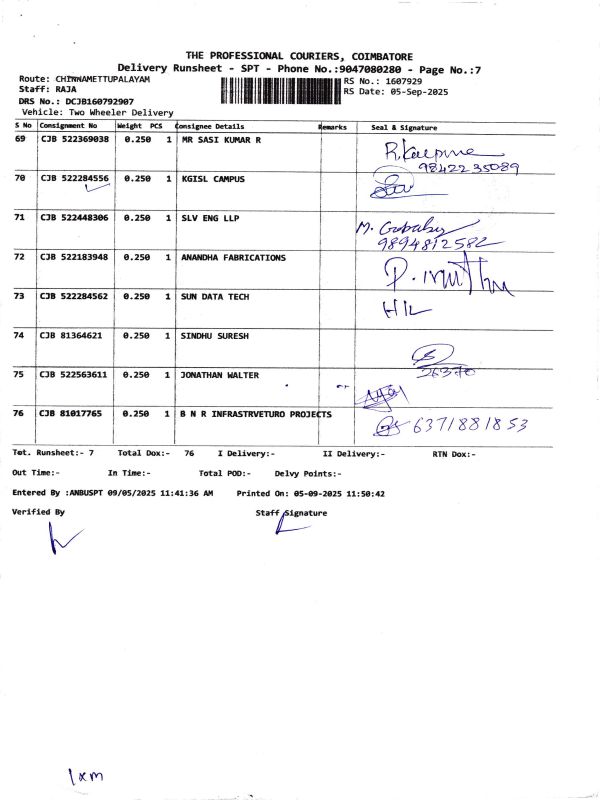 THE PROFESSIONAL COURIERS, COIMBATORE
Delivery Runsheet - SPT - Phone No.:9047080280 - Page No.:7
Route: CHINNAMETTUPALAYAM RS No.: 1607929
Staff: RAJA RS Date: 05-Sep-2025
DRS No.: DCJB160792907
Vehicle: Two Wheeler Delivery
S No Consignment No Weight PCS Consignee Details Remarks Seal & Signature
69 CJB 522369038 0.250 1 MR SASI KUMAR R
9842235089
70 CJB 522284556 0.250 1 KGISL CAMPUS
71 CJB 522448306 0.250 1 SLV ENG LLP M.
9894812582
72 CJB 522183948 0.250 1 ANANDHA FABRICATIONS
73 CJB 522284562 0.250 1 SUN DATA TECH
74 CJB 81364621 0.250 1 SINDHU SURESH
26370
75 CJB 522563611 0.250 1 JONATHAN WALTER
76 CJB 81017765 0.250 1 B N R INFRASTRVETURO PROJECTS 6371881853
Tot. Runsheet:- 7 Total Dox:- 76 I Delivery:- II Delivery:- RTN Dox:-
Out Time:- In Time:- Total POD:- Delvy Points:-
Entered By :ANBUSPT 09/05/2025 11:41:36 AM Printed On: 05-09-2025 11:50:42
Verified By Staff Signature